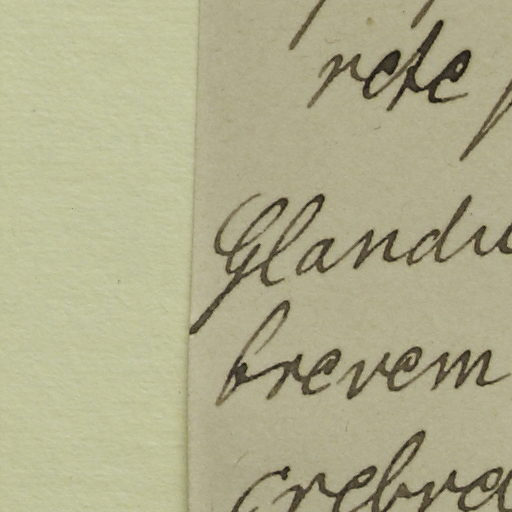 rete
Glandu
brevem
crebra